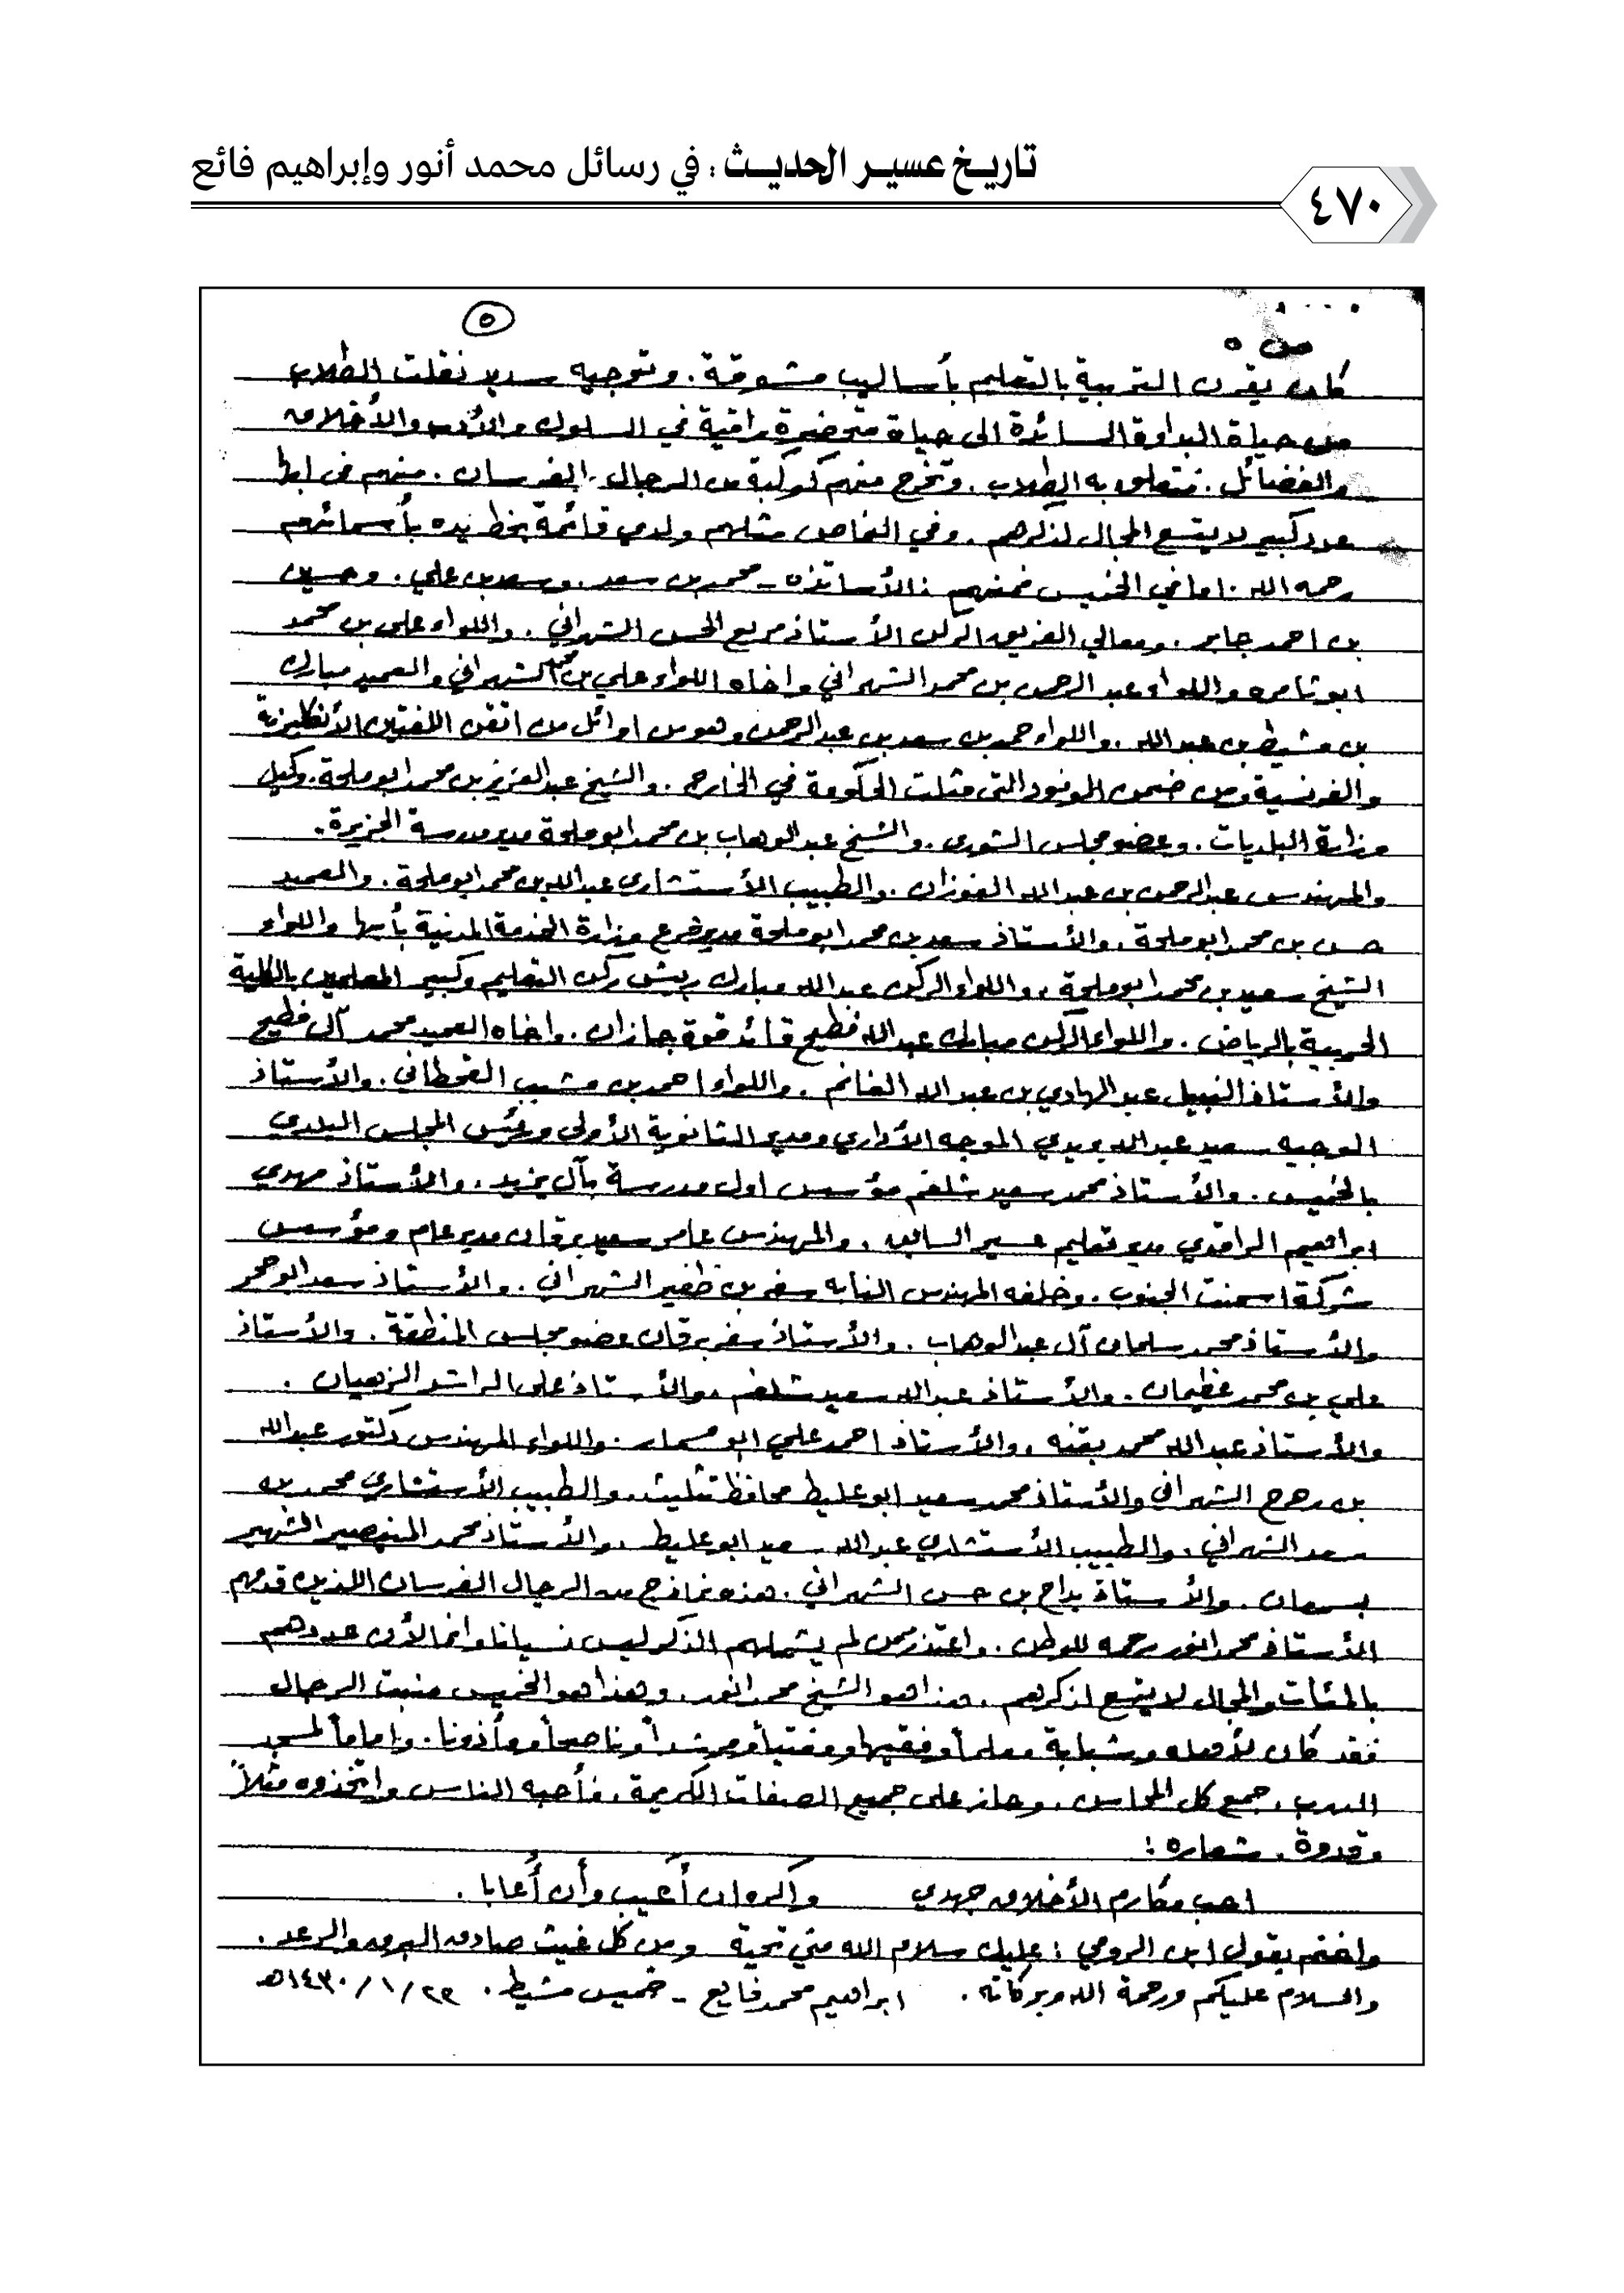 تاريخ عسير الحديث : في رسائل محمد أنور وإبراهيم فائع
٤٧٠
٥
ص ٥
كان يقرن التربية بالتعليم بأساليب مشوقة . وتوجيه سديد نقلت الطلاب
من حياة البداوة السائدة الى حياة متحضرة راقية في السلوك والأدب والأخلاق
والفضائل . فتعلق به الطلاب . وتخرج منهم كوكبة من الرجال الفرسان . منهم في ابها
عدد كبير لا يتسع المجال لذكرهم . وفي النماص مثلهم ولدي قائمة بخط يده بأسمائهم
رحمه الله . اما في الخميس فمنهم : الأساتذه - محمد بن سعد . وسعد بن علي . وحسين
بن احمد جابر . ومعالي الفريق الركن الأستاذ مريع الحسن الشهراني . واللواء علي بن محمد
ابو ثامره واللواء عبد الرحمن بن محمد الشهراني واخاه اللواء علي بن محمد الشهراني والعميد مبارك
بن مشيط بن عبدالله . واللواء حمد بن سعد بن عبدالرحمن وهو من اوائل من اتقن اللغتين الأنكليزية
والفرنسية ومن ضمن الوفود التي مثلت الحكومة في الخارج . والشيخ عبدالعزيز بن محمد ابوملحة . وكيل
وزارة البلديات . وعضو مجلس الشورى . والشيخ عبدالوهاب بن محمد ابوملحة مدير مدرسة الجزيرة .
والمهندس عبدالرحمن بن عبدالله الفوزان . والطبيب الأستشاري عبدالله بن محمد ابوملحة . والعميد
حسن بن محمد ابوملحة . والأستاذ سعد بن محمد ابوملحة مدير فرع وزارة الخدمة المدنية بأبها واللواء
الشيخ سعيد بن محمد ابوملحة . واللواء الركن عبدالله مبارك رئيس ركن التعليم وكبير المعلمين بالكلية
الحربية بالرياض . واللواء الركن مبارك عبدالله فطيح قائد قوة جازان . واخاه العميد محمد آل فطيح
والأستاذ النبيل عبدالهادي بن عبدالله الغانم . واللواء احمد بن مشبب القحطاني . والأستاذ
الوجيه سعيد عبدالله بريدي الموجه الأداري ومدير الثانوية الأولى ورئيس المجلس البلدي
بالخميس . والأستاذ محمد سعيد شلغم مؤسس اول مدرسة بآل يزيد . والأستاذ مهدي
ابراهيم الراقدي مدير تعليم عسير السابق . والمهندس عامر سعيد برقان مدير عام ومؤسس
شركة اسمنت الجنوب . وخلفه المهندس النابه سفر بن ظفير الشهراني . والأستاذ سعد ابو حجر
والأستاذ محمد سلمان آل عبدالوهاب . والأستاذ سفر برقان عضو مجلس المنطقة . والأستاذ
علي بن محمد غظيمان . والأستاذ عبدالله سعيد شلغم . والأستاذ علي الراشد الزهيان .
والأستاذ عبدالله محمد يقنه . والأستاذ احمد علي ابو مسمار . واللواء المهندس دكتور عبدالله
بن هرج الشهراني والأستاذ محمد سعيد ابو عليط محافظ تثليث . والطبيب الأستشاري محمد بن
سعد الشهراني . والطبيب الأستشاري عبدالله سعيد ابو عليط . والأستاذ محمد المنصير الشهير
بسرحان . والأستاذ بداح بن حسن الشهراني . هذه نماذج من الرجال الفرسان اللذين قدمهم
الأستاذ محمد انور رحمه للوطن . واعتذر ممن لم يشملهم الذكر ليس نسيانا وانما لأن عددهم
بالمئات والمجال لا يتسع لذكرهم . هذا هو الشيخ محمد انور . وهذا هو الخميس منبت الرجال
فقد كان لأهله وشبابة معلماً وفقيها ومفتياً ومرشداً وناصحاً ومأذونا . واماماً لمسجد
الدرب . جمع كل المحاسن . وحاز على جميع الصفات الكريمة . فأحبه الناس واتخذوه مثلاً
وقدوة . شعاره :
احب مكارم الأخلاق جهدي واكره ان أَعيب وأن أُعابا .
واختم بقول ابن الرومي : عليك سلام الله مني تحية ومن كل غيث صادق البرق والرعد .
والسلام عليكم ورحمة الله وبركاته . ابراهيم محمد فايع - خميس مشيط . ٢٢ / ١ / ١٤٣٠هـ